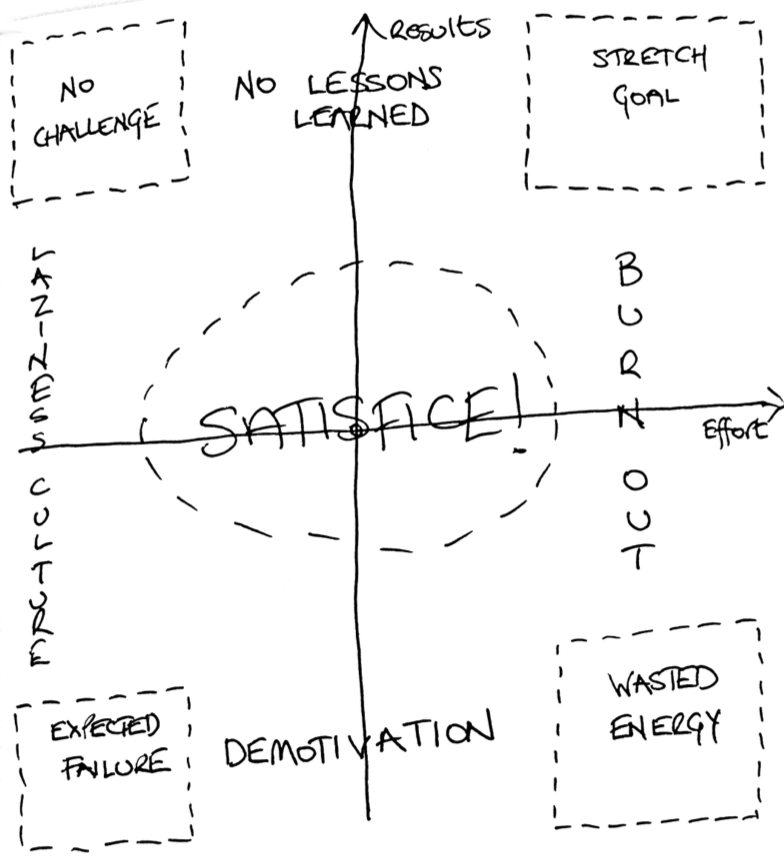 Results
NO
CHALLENGE
NO LESSONS
LEARNED
STRETCH
GOAL
LAZINESS CULTURE
BURN OUT
SATISFICE!
Effort
EXPECTED
FAILURE
DEMOTIVATION
WASTED
ENERGY